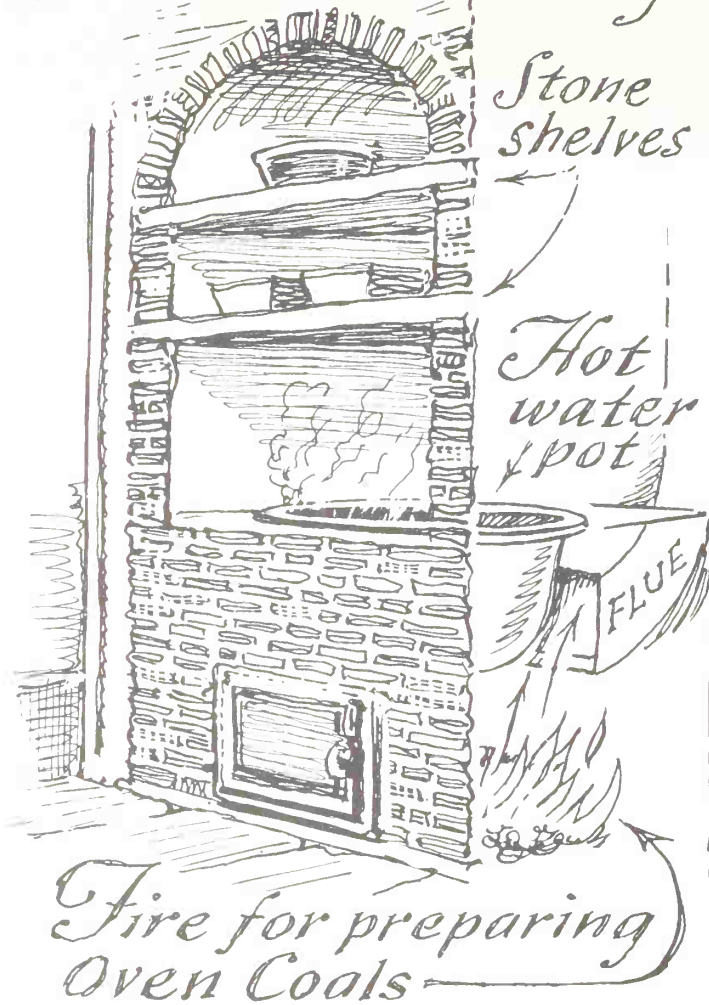 Stone
shelves
Hot
water
pot
FLUE
Fire for preparing
Oven Coals